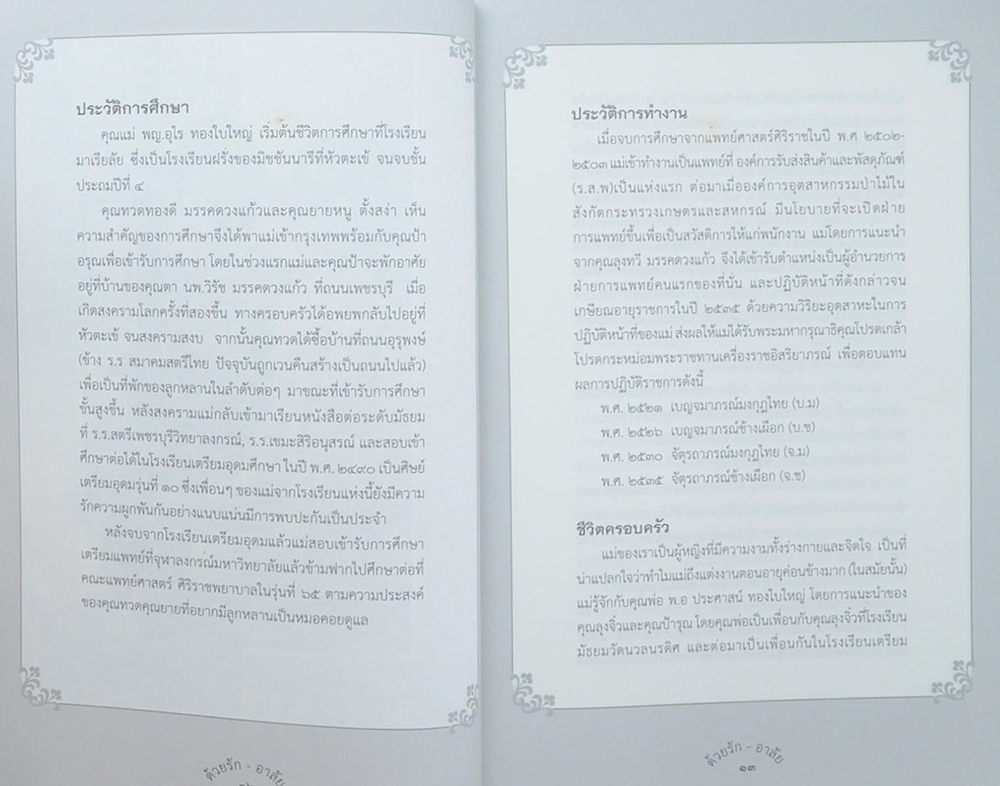 ประวัติการศึกษา
คุณแม่ พญ.อุไร ทองใบใหญ่ เริ่มต้นชีวิตการศึกษาที่โรงเรียน
มาเรียลัย ซึ่งเป็นโรงเรียนฝรั่งของมิชชันนารีที่หัวตะเข้ จนจบชั้น
ประถมปีที่ ๔
คุณทวดทองดี มรรคดวงแก้วและคุณยายหนู ตั้งสง่า เห็น
ความสำคัญของการศึกษาจึงได้พาแม่เข้ากรุงเทพพร้อมกับคุณป้า
อรุณเพื่อเข้ารับการศึกษา โดยในช่วงแรกแม่และคุณป้าจะพักอาศัย
อยู่ที่บ้านของคุณตา นพ.วิรัช มรรคดวงแก้ว ที่ถนนเพชรบุรี เมื่อ
เกิดสงครามโลกครั้งที่สองขึ้น ทางครอบครัวได้อพยพกลับไปอยู่ที่
หัวตะเข้ จนสงครามสงบ จากนั้นคุณทวดได้ซื้อบ้านที่ถนนอุรุพงษ์
(ข้าง ร.ร สมาคมสตรีไทย ปัจจุบันถูกเวนคืนสร้างเป็นถนนไปแล้ว)
เพื่อเป็นที่พักของลูกหลานในลำดับต่อๆ มาขณะที่เข้ารับการศึกษา
ชั้นสูงขึ้น หลังสงครามแม่กลับเข้ามาเรียนหนังสือต่อระดับมัธยม
ที่ ร.ร.สตรีเพชรบุรีวิทยาลงกรณ์, ร.ร.เขมะสิริอนุสรณ์ และสอบเข้า
ศึกษาต่อได้ในโรงเรียนเตรียมอุดมศึกษา ในปี พ.ศ. ๒๔๙๐ เป็นศิษย์
เตรียมอุดมรุ่นที่ ๑๐ ซึ่งเพื่อนๆ ของแม่จากโรงเรียนแห่งนี้ยังมีความ
รักความผูกพันกันอย่างแนบแน่นมีการพบปะกันเป็นประจำ
หลังจบจากโรงเรียนเตรียมอุดมแล้วแม่สอบเข้ารับการศึกษา
เตรียมแพทย์ที่จุฬาลงกรณ์มหาวิทยาลัยแล้วข้ามฟากไปศึกษาต่อที่
คณะแพทย์ศาสตร์ ศิริราชพยาบาลในรุ่นที่ ๖๕ ตามความประสงค์
ของคุณทวดคุณยายที่อยากมีลูกหลานเป็นหมอคอยดูแล
ด้วยรัก - อาลัย
ประวัติการทำงาน
เมื่อจบการศึกษาจากแพทย์ศาสตร์ศิริราชในปี พ.ศ ๒๕๐๒-
๒๕๐๓ แม่เข้าทำงานเป็นแพทย์ที่ องค์การรับส่งสินค้าและพัสดุภัณฑ์
(ร.ส.พ)เป็นแห่งแรก ต่อมาเมื่อองค์การอุตสาหกรรมป่าไม้ใน
สังกัดกระทรวงเกษตรและสหกรณ์ มีนโยบายที่จะเปิดฝ่าย
การแพทย์ขึ้นเพื่อเป็นสวัสดิการให้แก่พนักงาน แม่โดยการแนะนำ
จากคุณลุงทวี มรรคดวงแก้ว จึงได้เข้ารับตำแหน่งเป็นผู้อำนวยการ
ฝ่ายการแพทย์คนแรกของที่นั่น และปฏิบัติหน้าที่ดังกล่าวจน
เกษียณอายุราชการในปี ๒๕๓๕ ด้วยความวิริยะอุตสาหะในการ
ปฏิบัติหน้าที่ของแม่ ส่งผลให้แม่ได้รับพระมหากรุณาธิคุณโปรดเกล้า
โปรดกระหม่อมพระราชทานเครื่องราชอิสริยาภรณ์ เพื่อตอบแทน
ผลการปฏิบัติราชการดังนี้
พ.ศ. ๒๕๒๑ เบญจมาภรณ์มงกุฎไทย (บ.ม)
พ.ศ. ๒๕๒๖ เบญจมาภรณ์ช้างเผือก (บ.ช)
พ.ศ. ๒๕๓๐ จัตุรถาภรณ์มงกุฎไทย (จ.ม)
พ.ศ. ๒๕๓๕ จัตุรถาภรณ์ช้างเผือก (จ.ช)
ชีวิตครอบครัว
แม่ของเราเป็นผู้หญิงที่มีความงามทั้งร่างกายและจิตใจ เป็นที่
น่าแปลกใจว่าทำไมแม่ถึงแต่งงานตอนอายุค่อนข้างมาก (ในสมัยนั้น)
แม่รู้จักกับคุณพ่อ พ.อ ประศาสน์ ทองใบใหญ่ โดยการแนะนำของ
คุณลุงจิ๋วและคุณป้ารุณ โดยคุณพ่อเป็นเพื่อนกับคุณลุงจิ๋วที่โรงเรียน
มัธยมวัดนวลนรดิศ และต่อมาเป็นเพื่อนกันในโรงเรียนเตรียม
ด้วยรัก - อาลัย
๑๓